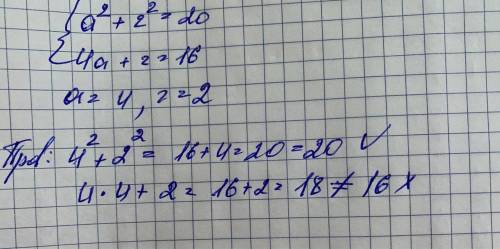 { a² + z² = 20
4a + z = 16
a = 4, z = 2
Прв: 4² + 2² = 16 + 4 = 20 = 20 ✓
4 · 4 + 2 = 16 + 2 = 18 ≠ 16 x